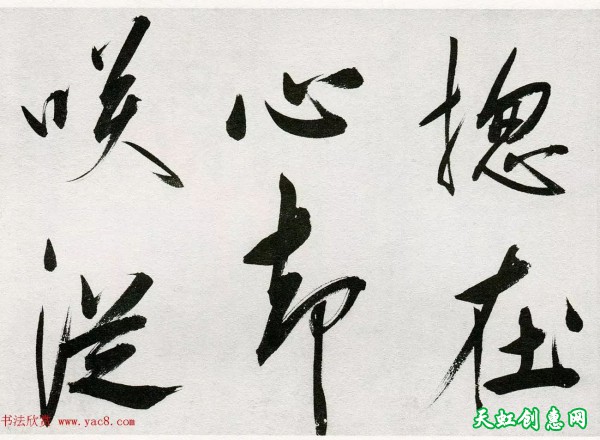 揔在
心却
咲従
书法欣赏 www.yac8.com
天虹创惠网